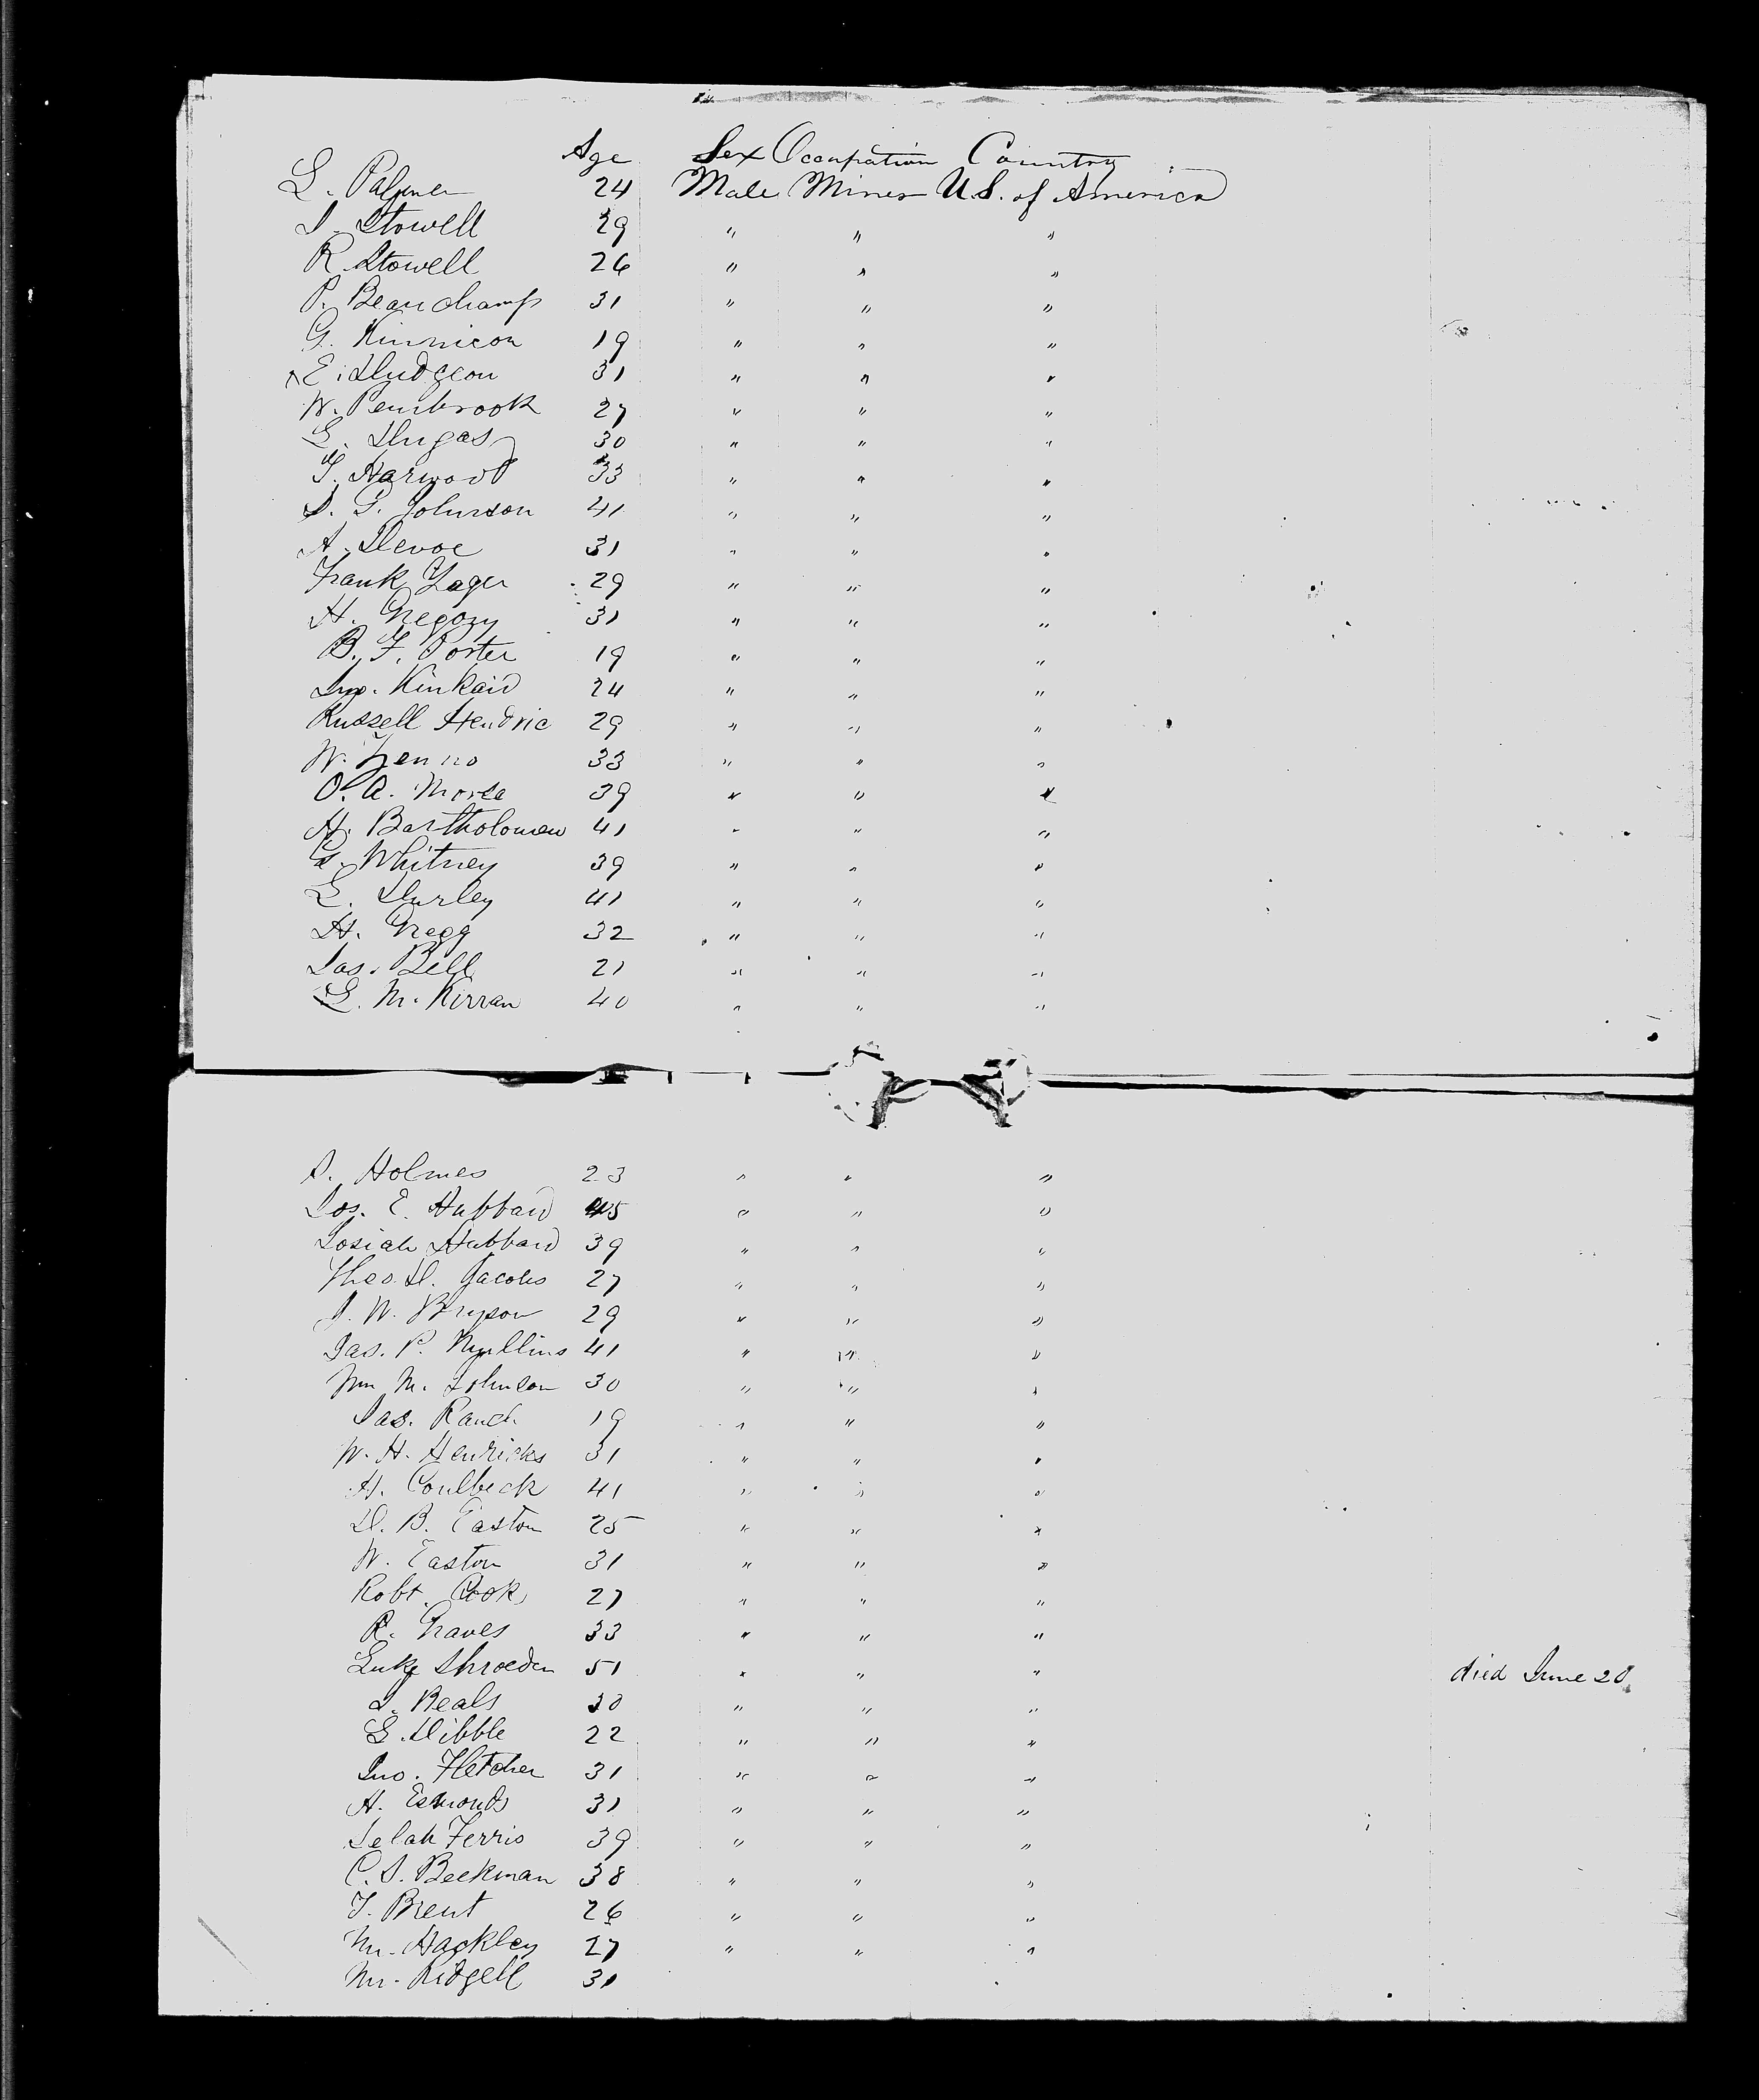 Age Sex Occupation Country
L. Palmer 24 Male Miner U.S. of America
S. Stowell 29 " " "
R. Stowell 26 " " "
P. Beauchamp 31 " " "
G. Kinnicon 19 " " "
x E. Dudgeon 31 " " "
W. Pembrook 27 " " "
L. Dugas 30 " " "
T. Harwood 33 " " "
S. G. Johnson 41 " " "
A. Devoe 31 " " "
Frank Yager 29 " " "
H. Gregory 31 " " "
B. F. Porter 19 " " "
Jno. Kinkaid 24 " " "
Russell Hendric 29 " " "
W. Zenno 33 " " "
O. A. Morse 39 " " "
H. Bartholomew 41 " " "
G. Whitney 39 " " "
L. Durley 41 " " "
H. Gregg 32 " " "
Jas. Bell 21 " " "
L. M. Kirran 40 " " "
S. Holmes 23 " " "
Jos. E. Hubbard 45 " " "
Josiah Hubbard 39 " " "
Theo. D. Jacobs 27 " " "
J. W. Bryson 29 " " "
Jas. P. Mullins 41 " " "
Wm M. Johnson 30 " " "
Jas. Rauch 19 " " "
W. H. Henricks 31 " " "
H. Coulbeck 41 " " "
D. B. Easton 25 " " "
W. Easton 31 " " "
Robt. Cook 27 " " "
R. Graves 33 " " "
Luke Shroeder 51 " " " died June 20
J. Beals 30 " " "
G. Dibble 22 " " "
Jno. Fletcher 31 " " "
A. Esmonds 31 " " "
Selah Ferris 39 " " "
C. S. Beekman 38 " " "
T. Brent 26 " " "
M. Hackley 27 " " "
M. Ridgell 31